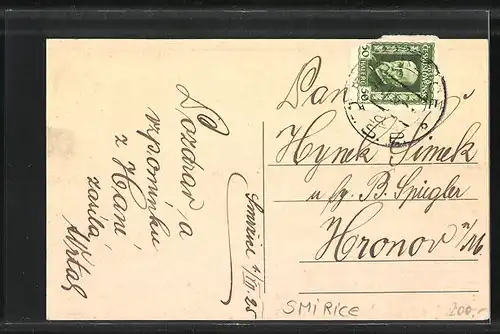 Pozdrav a
vzpomínku
z Hané
zasílá
Smiřice 4/IV. 25
Pan
Hynek Šimek
u fy. B. Spiegler
Hronov n/M.
50 50
SMIŘICE
200,-